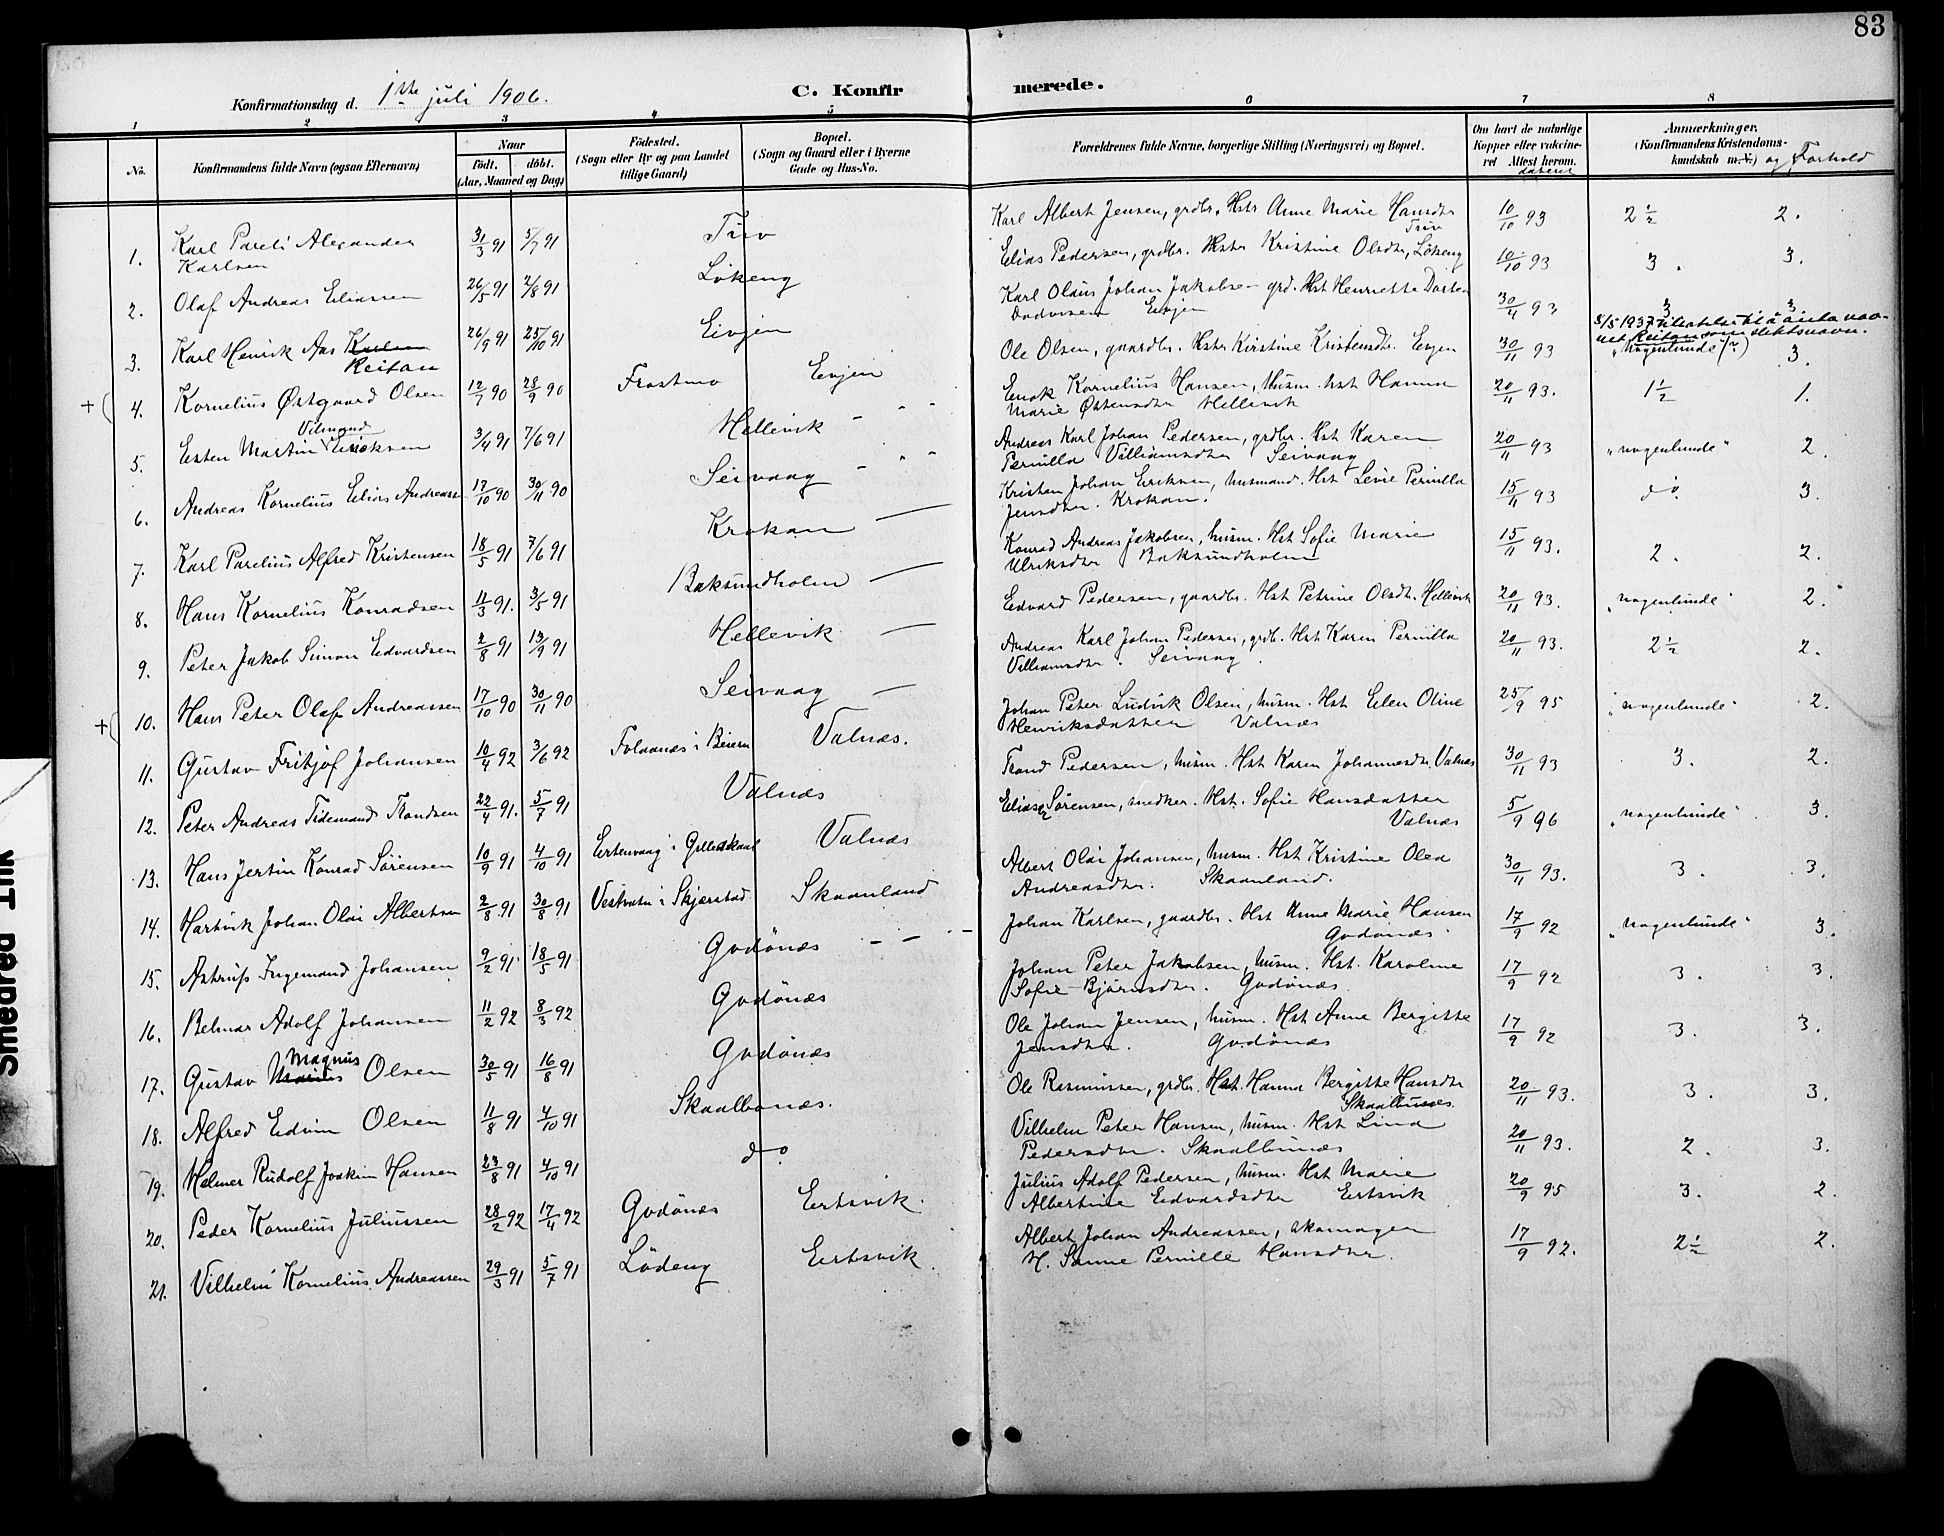 83
Konfirmationsdag d. 1ste juli 1906.
C. Konfirmerede.
1 2 3 4 5 6 7 8
No.
Konfirmandens fulde Navn (ogsaa Efternavn)
Naar
födt. döbt.
(Aar, Maaned og Dag)
Födested.
(Sogn eller By og paa Landet
tillige Gaard)
Bopæl.
(Sogn og Gaard eller i Byerne
Gade og Hus-No.
Forældrenes fulde Navne, borgerlige Stilling (Næringsvei) og Bopæl.
Om havt de naturlige
Kopper eller vakcine-
ret Attest herom.
dateret
Anmærkninger.
(Konfirmandens Kristendoms-
kundskab m.v.) og Forhold
1. Karl Pareli Alexander Karlsen 31/3 91 5/7 91 Tuv Karl Albert Jensen, grdbr. Hstr Anne Marie Hansdtr Tuv 10/10 93 2 1/2 2.
2. Olaf Andreas Eliassen 26/5 91 2/8 91 Lökeng Elias Pedersen, grdbr. Hstr Kristine Olsdtr, Lökeng 10/10 93 3. 3.
3. Karl Henrik Aas Karlsen Reitan 26/9 91 25/10 91 Eivjen Karl Olaus Johan Jakobsen grd. Hst Henriette Dorten Eivjen 30/4 93 3 3
8/5 1937 tilladelse til å anta navnet Reitan som slektsnavn.
4. Kornelius Østgaard Olsen 12/7 90 28/9 90 Frostmo Eivjen Ole Olsen, gaardbr. Hstr Kirstine Kristensdtr. Evjen 30/11 93 "nogenlunde" (?) 3.
5. Esten Martin Vilmand Eriksen 3/4 91 7/6 91 Hellevik - " - " Enok Kornelius Hansen, husm. Hst Hanna Marie Østensdtr Hellevik 20/11 93. 1 1/2 1.
6. Andreas Kornelius Elias Andreass 17/10 90 30/11 90 Seivaag - " - " Andreas Karl Johan Pedersen, grdbr. Hst Karen Pernilla Villiamsdtr Seivaag 20/11 93 "nogenlunde" 2.
7. Karl Parelius Alfred Kristensen 18/5 91 7/6 91 Krokan — Kristen Johan Eriksen, husmand. Hst Levie Pernilla Jensdtr. Krokan. 15/11 93 do. 3.
8. Hans Kornelius Konradsen 11/3 91. 3/5 91 Baksundholm — Konrad Andreas Jakobsen, husm. Hst Sofie Marie Ulriksdtr Baksundholm 15/11 93. 2. 2.
9. Peter Jakob Simon Edvardsen 2/8 91 13/9 91 Hellevik — Edvard Pedersen, gaardbr. Hst Petrine Olsdtr. Hellevik 20/11 93. "nogenlunde" 2.
10. Hans Peter Olaf Andreassen 17/10 90 30/11 90 Seivaag — Andreas Karl Johan Pedersen, grdb. Hst Karen Pernilla Villiamsdtr. Seivaag. 20/11 93. 2 1/2 2.
11. Gustav Fritjof Johansen 10/4 92 3/6 92 Tolaanes i Beiern Valnæs. Johan Peter Ludvik Olsen, husm. Hst Elen Oline Henriksdatter Valnæs 25/9 95 "nogenlunde" 2.
12. Peter Andreas Tidemand Trondsen 22/4 91. 5/7 91 Valnæs Trond Pedersen, husm. Hst Karen Johannesdtr. Valnæs 30/11 93 3. 2.
13. Hans Jertin Konrad Sørensen 10/9 91 4/10 91 Ertenvaag i Gilleskaal Valnæs Elias Sørensen, snedker. Hst. Sofie Hansdatter Valnæs 5/9 96 "nogenlunde" 3.
14. Hartvik Johan Olai Albertsen 2/8 91 30/8 91 Vestvatn i Skjerstad Skaanland Albert Olai Johansen, husm. Hst Kristine Olea Andreasdtr. Skaanland. 30/11 93. 3. 3.
15. Astrup Ingemand Johansen 9/2 91 18/5 91 Godönæs - - - Johan Karlsen, gaardbr. Hst Anne Marie Hansen Godönæs. 17/9 92 "nogenlunde" 3.
16. Belmar Adolf Johansen 11/2 92 8/3 92 Godönæs Johan Peter Jakobsen, husm. Hst. Karoline Sofie Björnsdtr. Godönæs. 17/9 92 3. 3.
17. Gustav Marius Magnus Olsen 30/5 91 16/8 91 Godönæs Ole Johan Jensen, husm. Hst Anne Bergitte Jensdtr. Godönæs 17/9 92 3. 3.
18. Alfred Edvin Olsen 11/8 91 4/10 91 Skaalbonæs. Ole Rasmussen, grdbr. Hst. Hanna Bergitte Hansdtr Skaalbunes. 20/11 93. 3. 3.
19. Helmer Rudolf Joakim Hansen 23/8 91 4/10 91 do Vilhelm Peter Hansen, husm. Hst Lina Pedersdtr. Skaalbunæs 20/11 93. 2. 3.
20. Peder Kornelius Juliussen 28/2 92 17/4 92 Godönæs Ertsvik. Julius Adolf Pedersen, husm. Hst Marie Albertine Edvardsdtr Ertsvik 20/9 95 3. 2.
21. Vilhelm Kornelius Andreassen 29/3 91 5/7 91 Löding Ertsvik. Albert Johan Andreassen, skomager H. Sanne Pernille Hansdtr. 17/9 92. 2 1/2 2.
Smedrød Ink